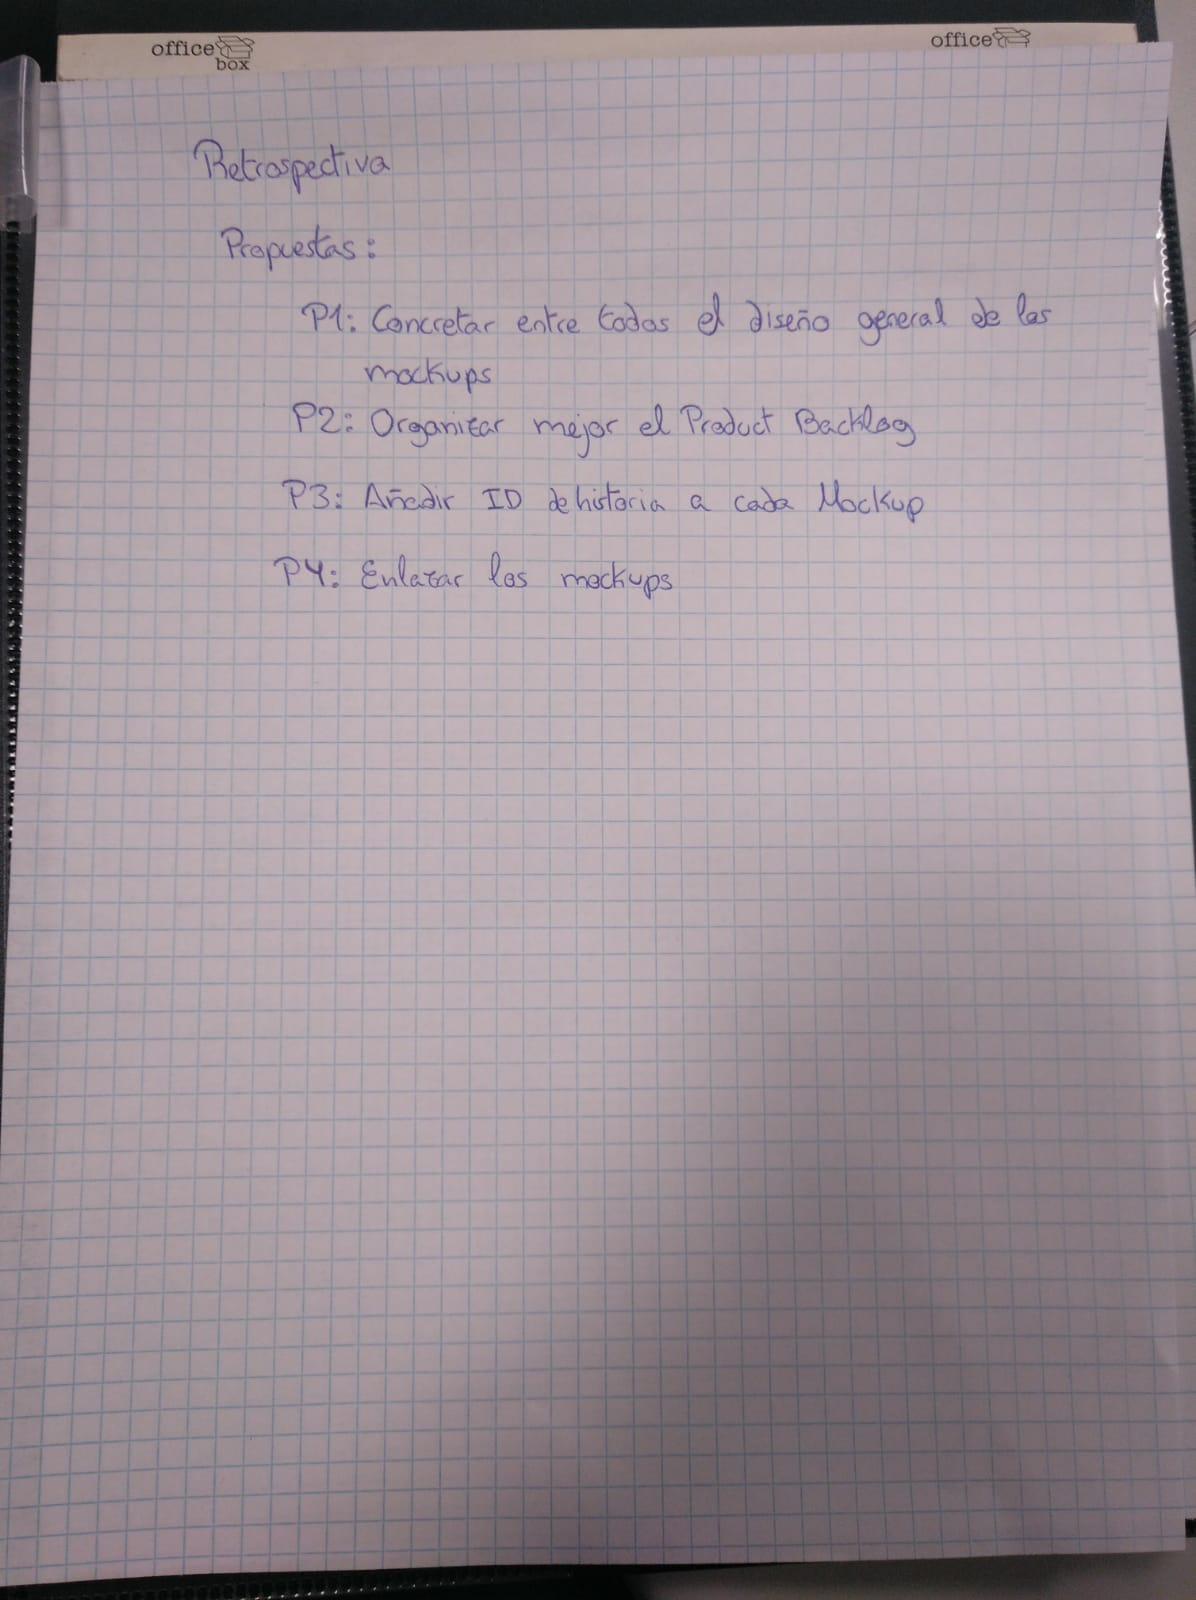 office box
office
Retrospectiva
Propuestas:
P1: Concretar entre todos el diseño general de los
mockups
P2: Organizar mejor el Product Backlog
P3: Añadir ID de historia a cada Mockup
P4: Enlazar los mockups